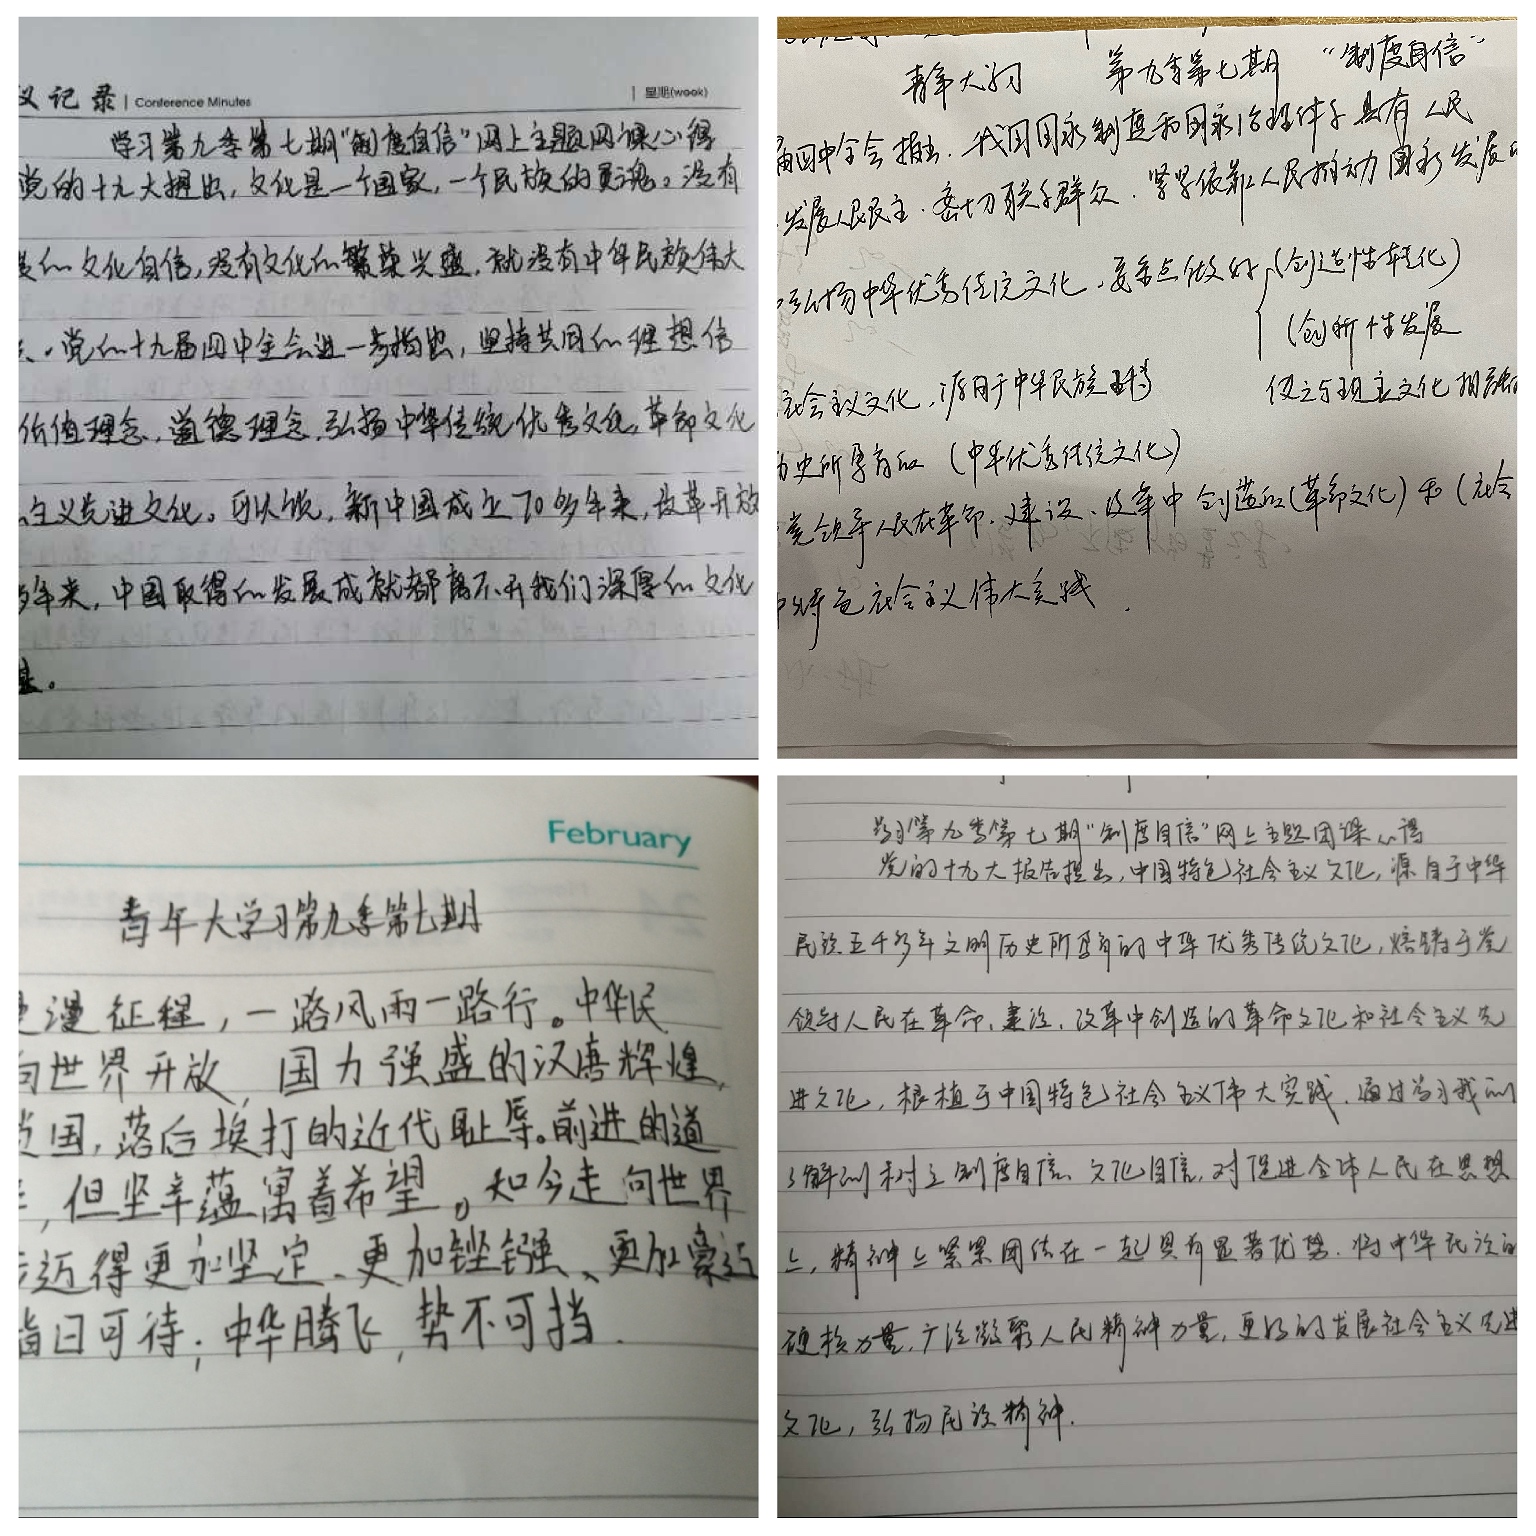 义记录 | Conference Minutes
星期(week)
学习第九季第七期"制度自信"网上主题网课心得
党的十九大提出,文化是一个国家,一个民族的灵魂。没有
的文化自信,没有文化的繁荣兴盛,就没有中华民族伟大
。党的十九届四中全会进一步指出,坚持共同的理想信
价值理念,道德理念,弘扬中华传统优秀文化,革命文化
主义先进文化。可以说,新中国成立70多年来,改革开放
多年来,中国取得的发展成就都离不开我们深厚的文化
青年大习 第九季第七期 "制度自信"
届四中全会指出,我国国家制度和国家治理体系具有人民
发展人民民主,密切联系群众,紧紧依靠人民推动国家发展的
弘扬中华优秀传统文化,要重点做好(创造性转化)
(创新性发展
社会主义文化,源自于中华民族 使之与现实文化相融
历史所孕育的(中华优秀传统文化)
党领导人民在革命、建设、改革中创造的(革命文化)和(社会
中特色社会主义伟大实践.
February
青年大学习第九季第七期
漫征程,一路风雨一路行。中华民
向世界开放,国力强盛的汉唐辉煌,
国,落后挨打的近代耻辱。前进的道
,但坚辛蕴寓着希望。如今走向世界
迈得更加坚定、更加铿锵、更加豪迈
指日可待;中华腾飞,势不可挡.
学习第九季第七期"制度自信"网上主题团课心得
党的十九大报告提出,中国特色社会主义文化,源自于中华
民族五千多年文明历史所孕育的中华优秀传统文化,熔铸于党
领导人民在革命、建设、改革中创造的革命文化和社会主义先
进文化,根植于中国特色社会主义伟大实践.通过学习我们
了解到树立制度自信、文化自信,对促进全体人民在思想
上,精神上紧紧团结在一起具有显著优势.将中华民族的
硬核力量,广泛凝聚人民精神力量,更好的发展社会主义先进
文化,弘扬民族精神.